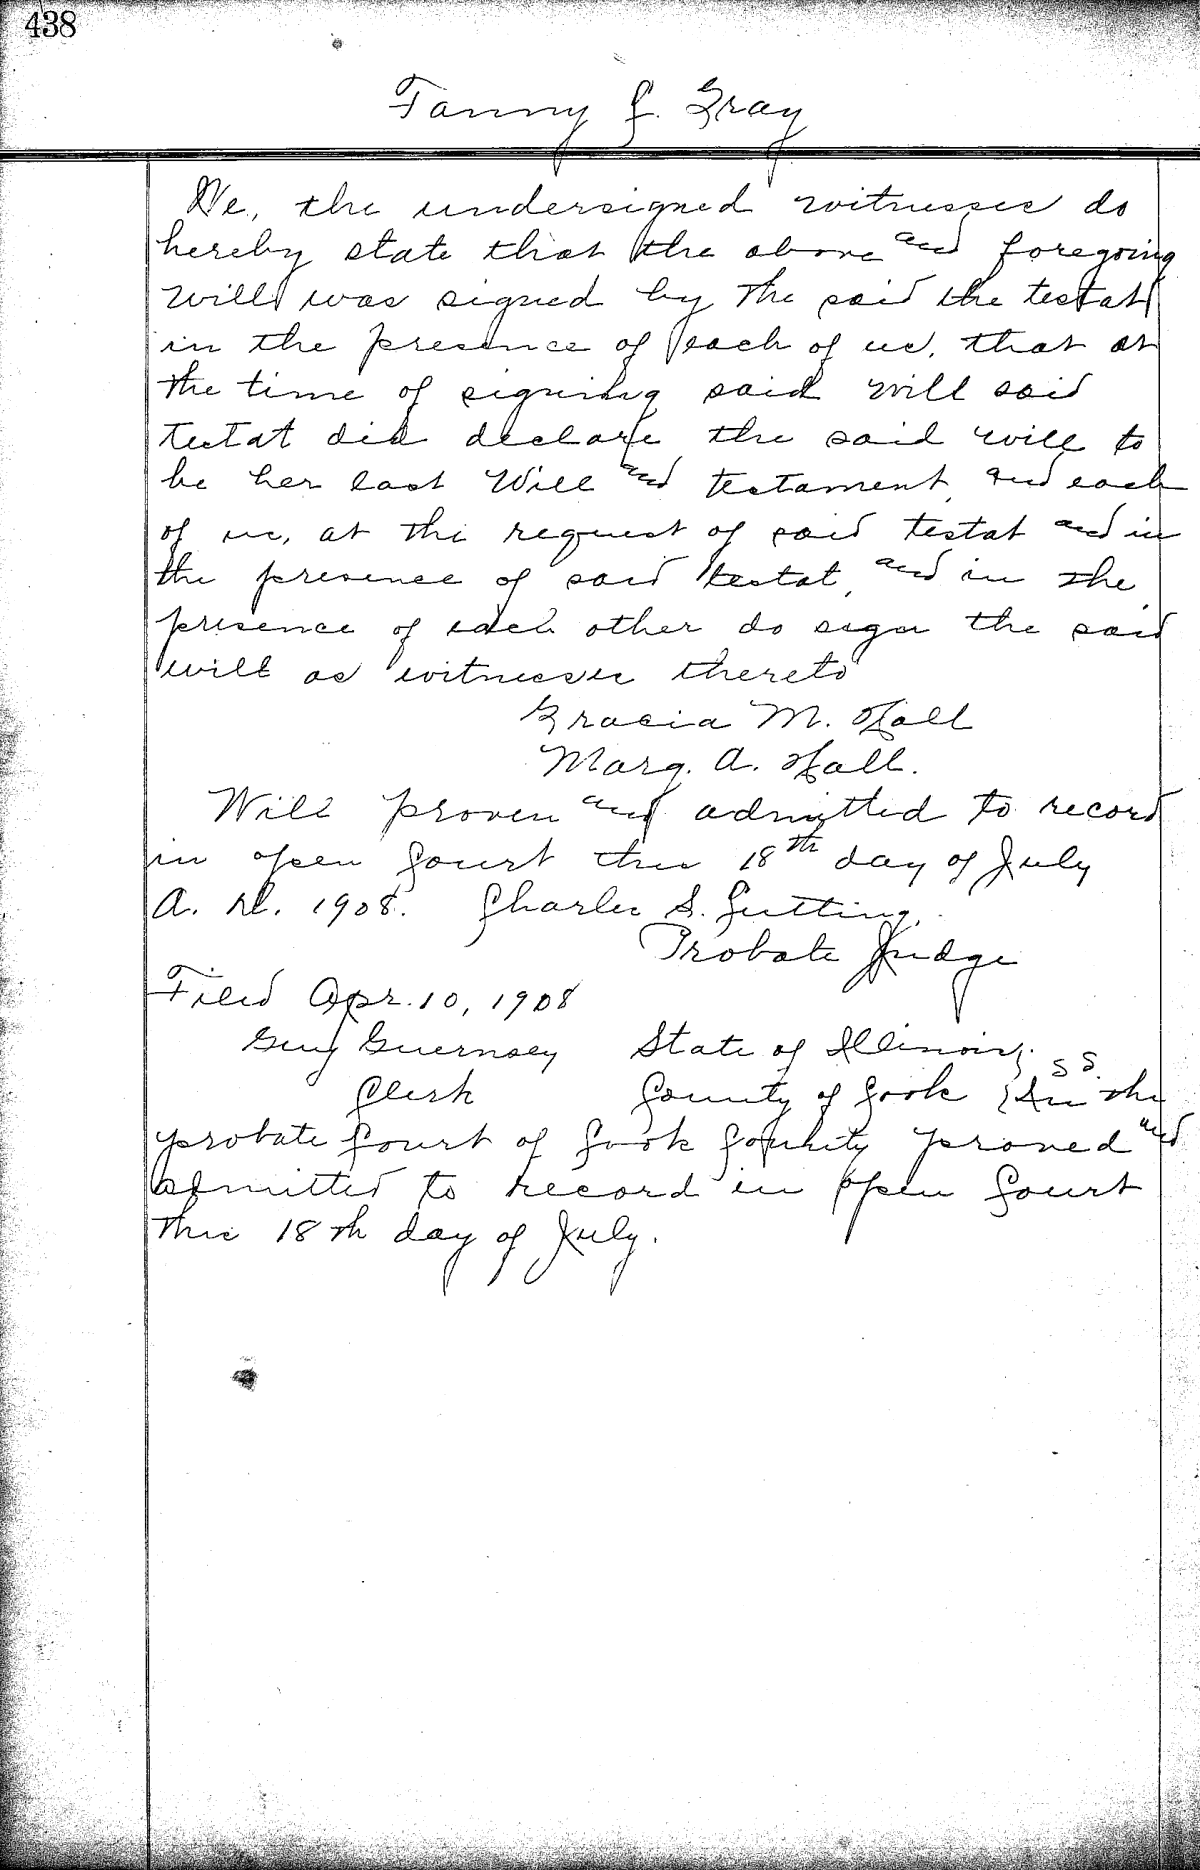 438
Fanny C. Gray
We, the undersigned witnesses do
hereby state that the above and foregoing
will was signed by the said the testat
in the presence of each of us, that at
the time of signing said will said
testat did declare the said will to
be her last Will and testament, and each
of us, at the request of said testat and in
the presence of said testat, and in the
presence of each other do sign the said
will as witnesses thereto
Gracia M. Hall
Marg. A. Hall.
Will proven and admitted to record
in open Court this 18th day of July
A. D. 1908. Charles S. Cutting,
Probate Judge
Filed Apr. 10, 1908
Guy Guernsey State of Illinois } SS.
Clerk County of Cook } In the
probate Court of Cook County proved and
admitted to record in open Court
this 18th day of July.